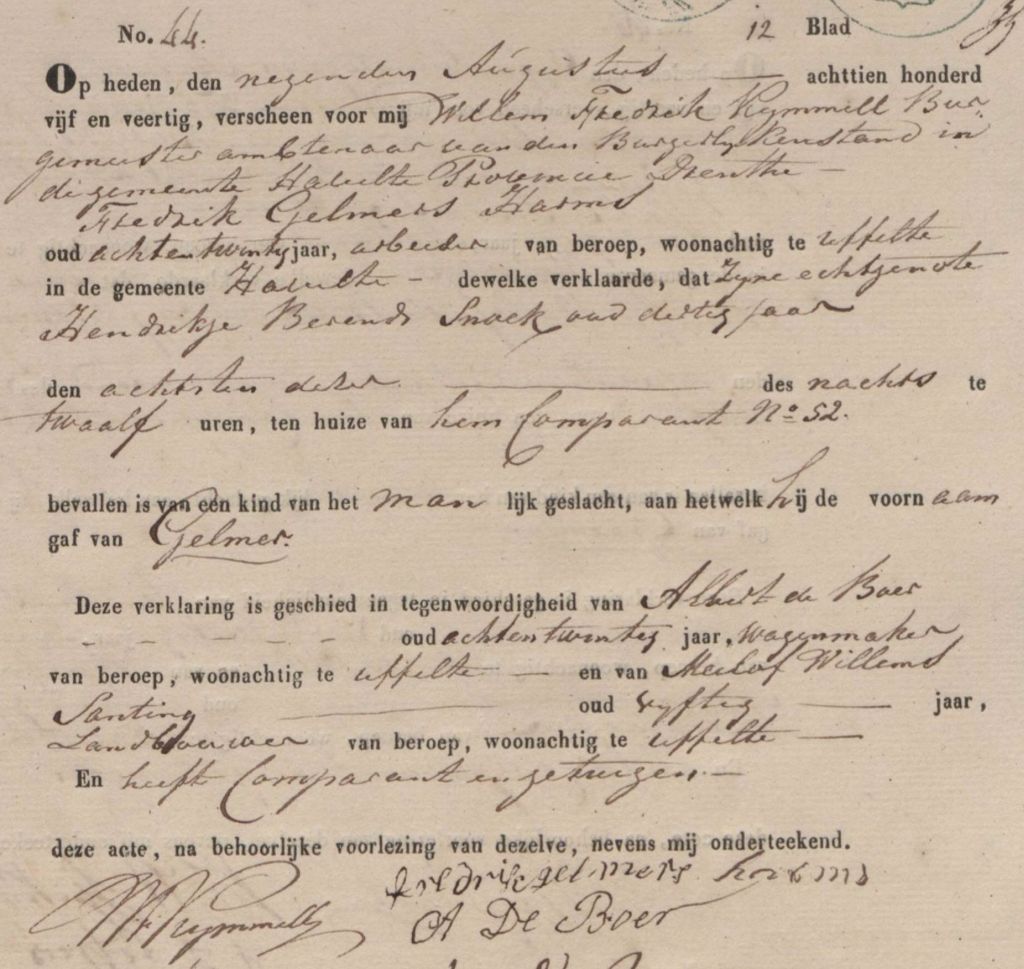 No. 44. 12 Blad
Op heden, den negenden Augustus — achttien honderd
vijf en veertig, verscheen voor mij Willem Fredrik Kymmell Bur-
gemeester ambtenaar van den Burgerlyken stand in
de gemeente Havelte Provincie Drenthe —
Fredrik Gelmers Harms
oud achtentwintig jaar, arbeider van beroep, woonachtig te Uffelte
in de gemeente Havelte — dewelke verklaarde, dat Zyne echtgenote
Hendrikje Berends Snoek oud dertig jaar
den achtsten dezer — des nachts te
twaalf uren, ten huize van hem Comparant No 52.
bevallen is van een kind van het man lijk geslacht, aan hetwelk hij de voorn aam
gaf van Gelmer.
Deze verklaring is geschied in tegenwoordigheid van Albert de Boer
- - - - - - oud achtentwintig jaar, Wagenmaker
van beroep, woonachtig te Uffelte — en van Meilof Willems
Santing — oud vyftig — jaar,
Landbouwer van beroep, woonachtig te Uffelte —
En heeft Comparant en getuigen. —
deze acte, na behoorlijke voorlezing van dezelve, nevens mij onderteekend.
W. F. Kymmell fredrik gelmers harms
A De Boer